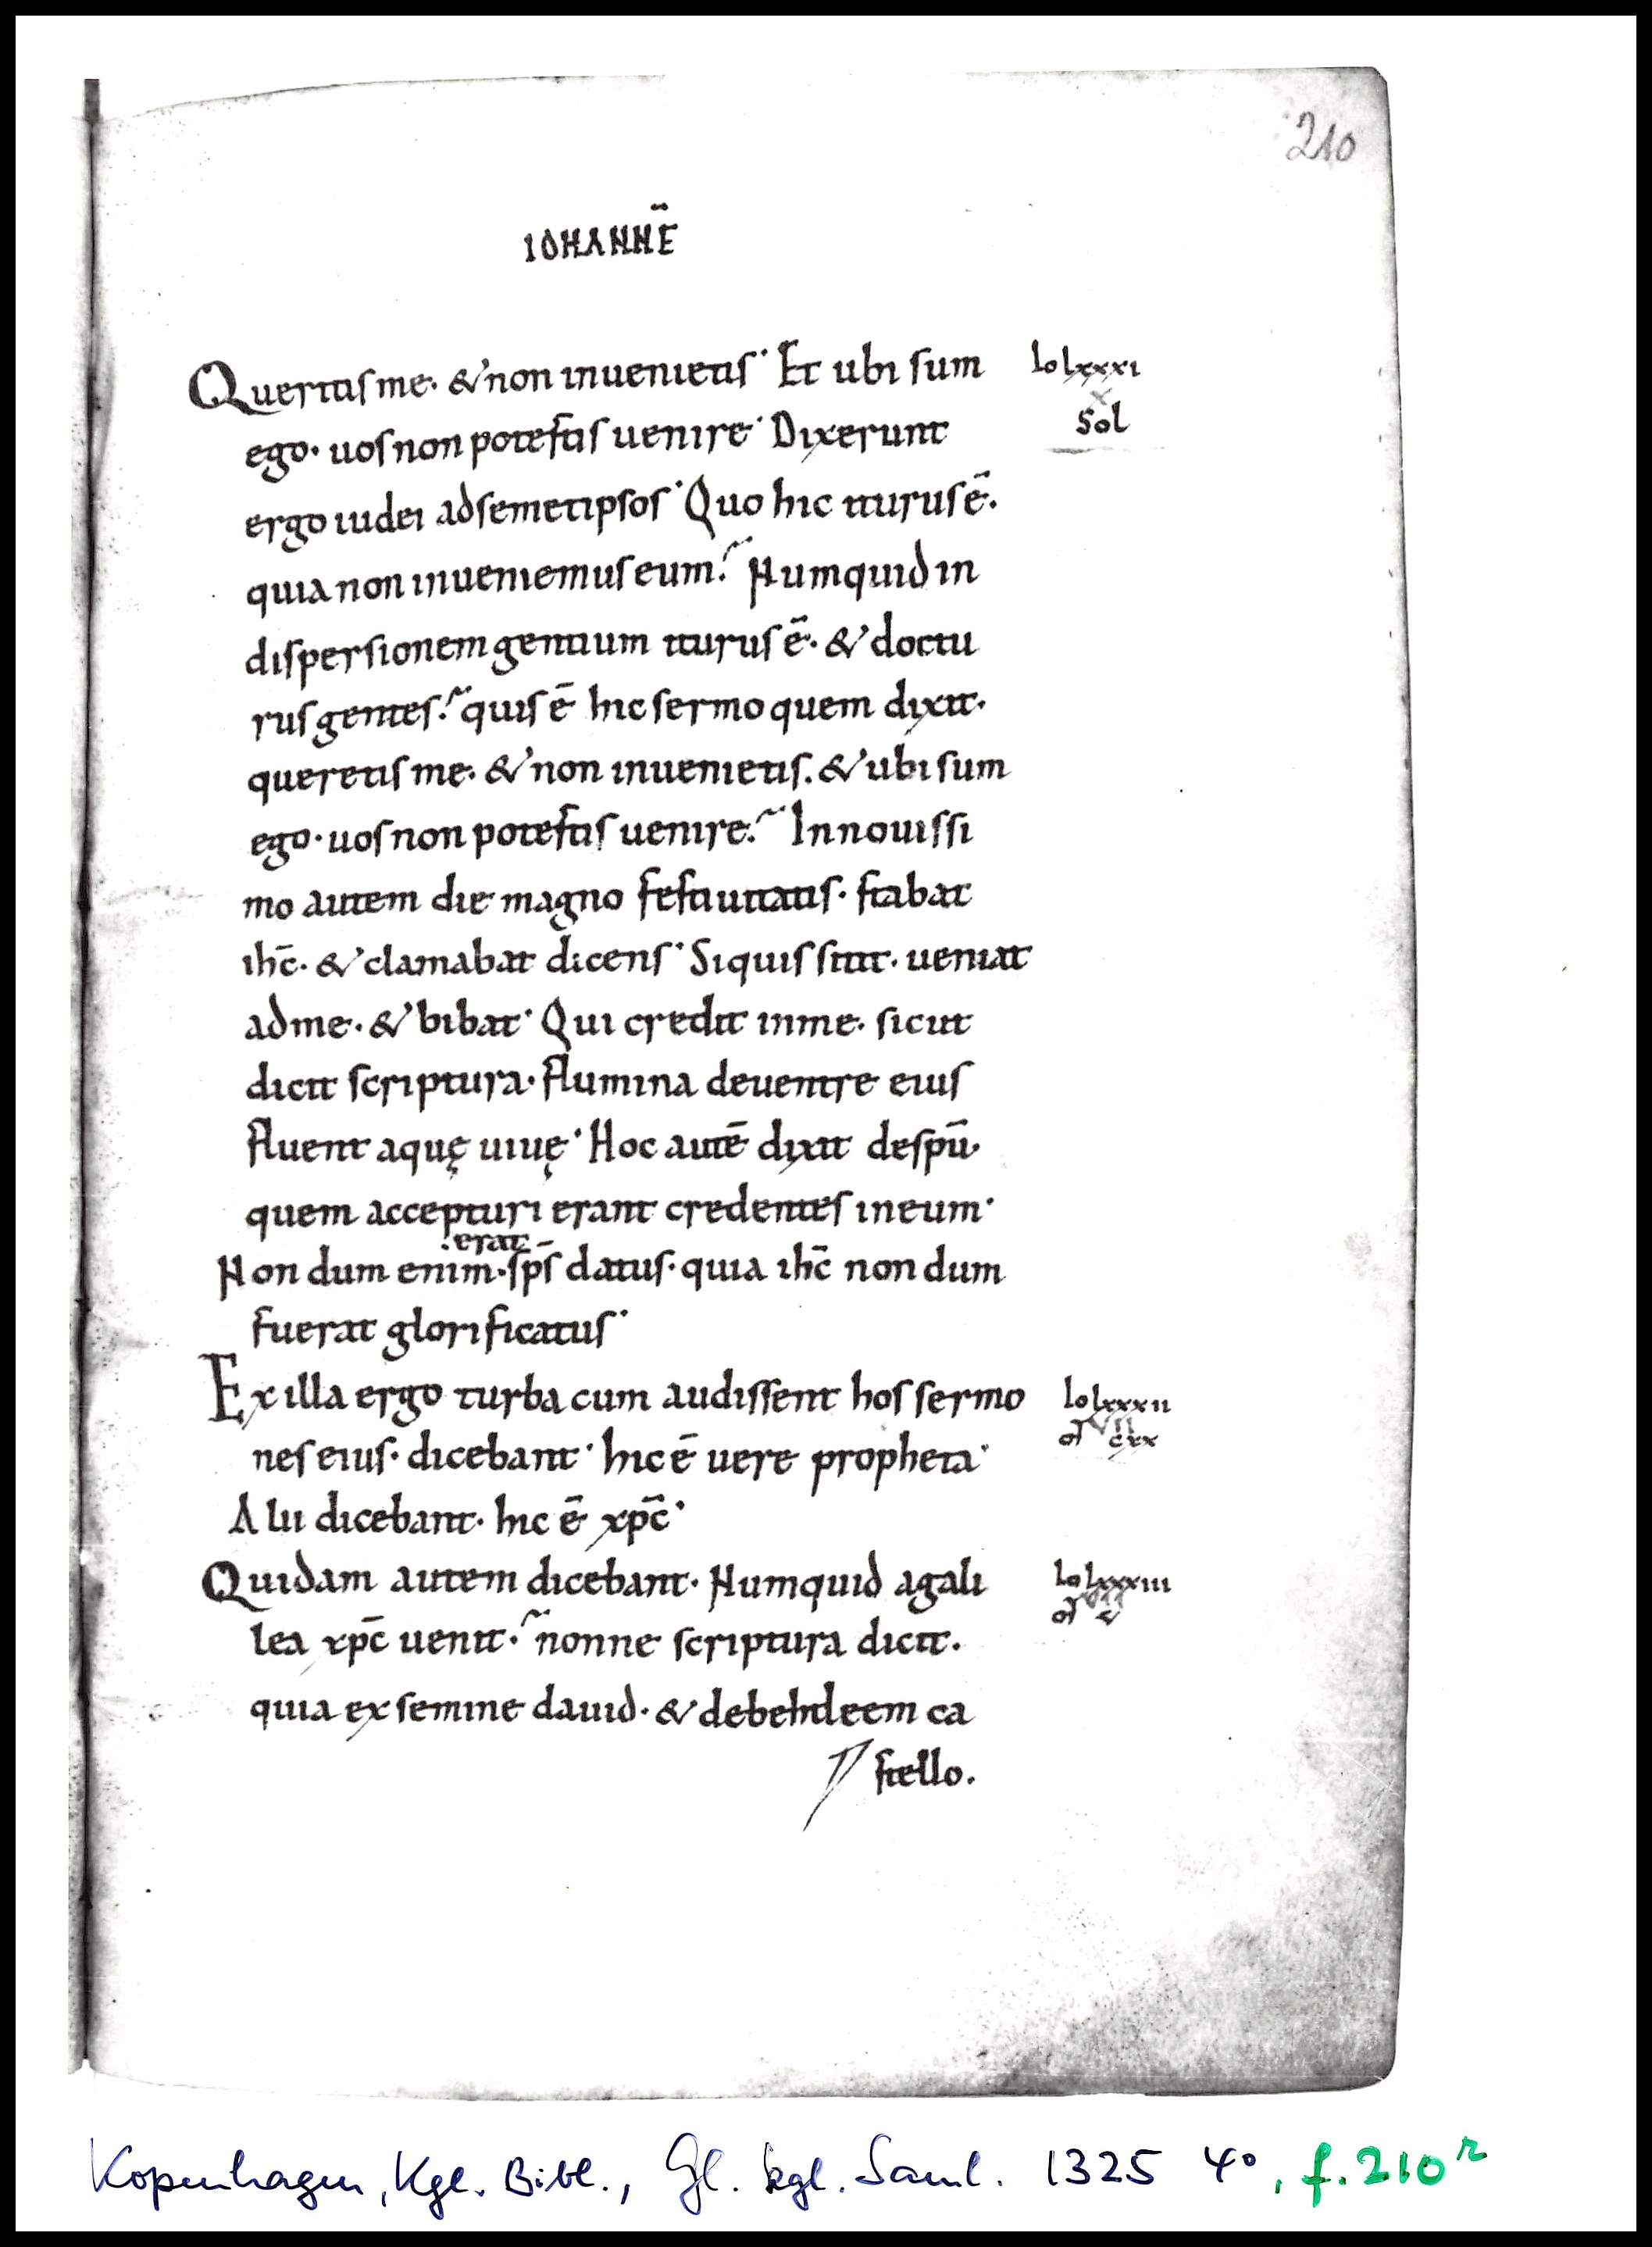 210
IOHANNE̅
Queritis me. & non inuenietis. Et ubi sum
lo lxxxi
x
Sol
ego. uos non potestis uenire. Dixerunt
ergo iudei ad semetipsos. Quo hic iturus ē.
quia non inueniemus eum? Numquid in
dispersionem gentium iturus ē. & doctu
rus gentes? quis ē hic sermo quem dixit.
queretis me. & non inuenietis. & ubi sum
ego. uos non potestis uenire? In nouissi
mo autem die magno festiuitatis. stabat
ihc̄. & clamabat dicens. Si quis sitit. ueniat
ad me. & bibat. Qui credit in me. sicut
dicit scriptura. flumina de uentre eius
fluent aquę uiuę. Hoc autē dixit de spū.
quem accepturi erant credentes in eum.
erat
Non dum enim. sp̄s datus. quia ihc̄ non dum
fuerat glorificatus.
Ex illa ergo turba cum audissent hos sermo
lo lxxxii
VII
cxx
nes eius. dicebant. hic ē uere propheta.
Alii dicebant. hic ē xpc̄.
Quidam autem dicebant. Numquid a gali
lo lxxxiii
VII
lea xpc̄ uenit? nonne scriptura dicit.
quia ex semine dauid. & de bethleem ca
stello.
Kopenhagen, Kgl. Bibl., Gl. kgl. Saml. 1325 4°, f. 210r